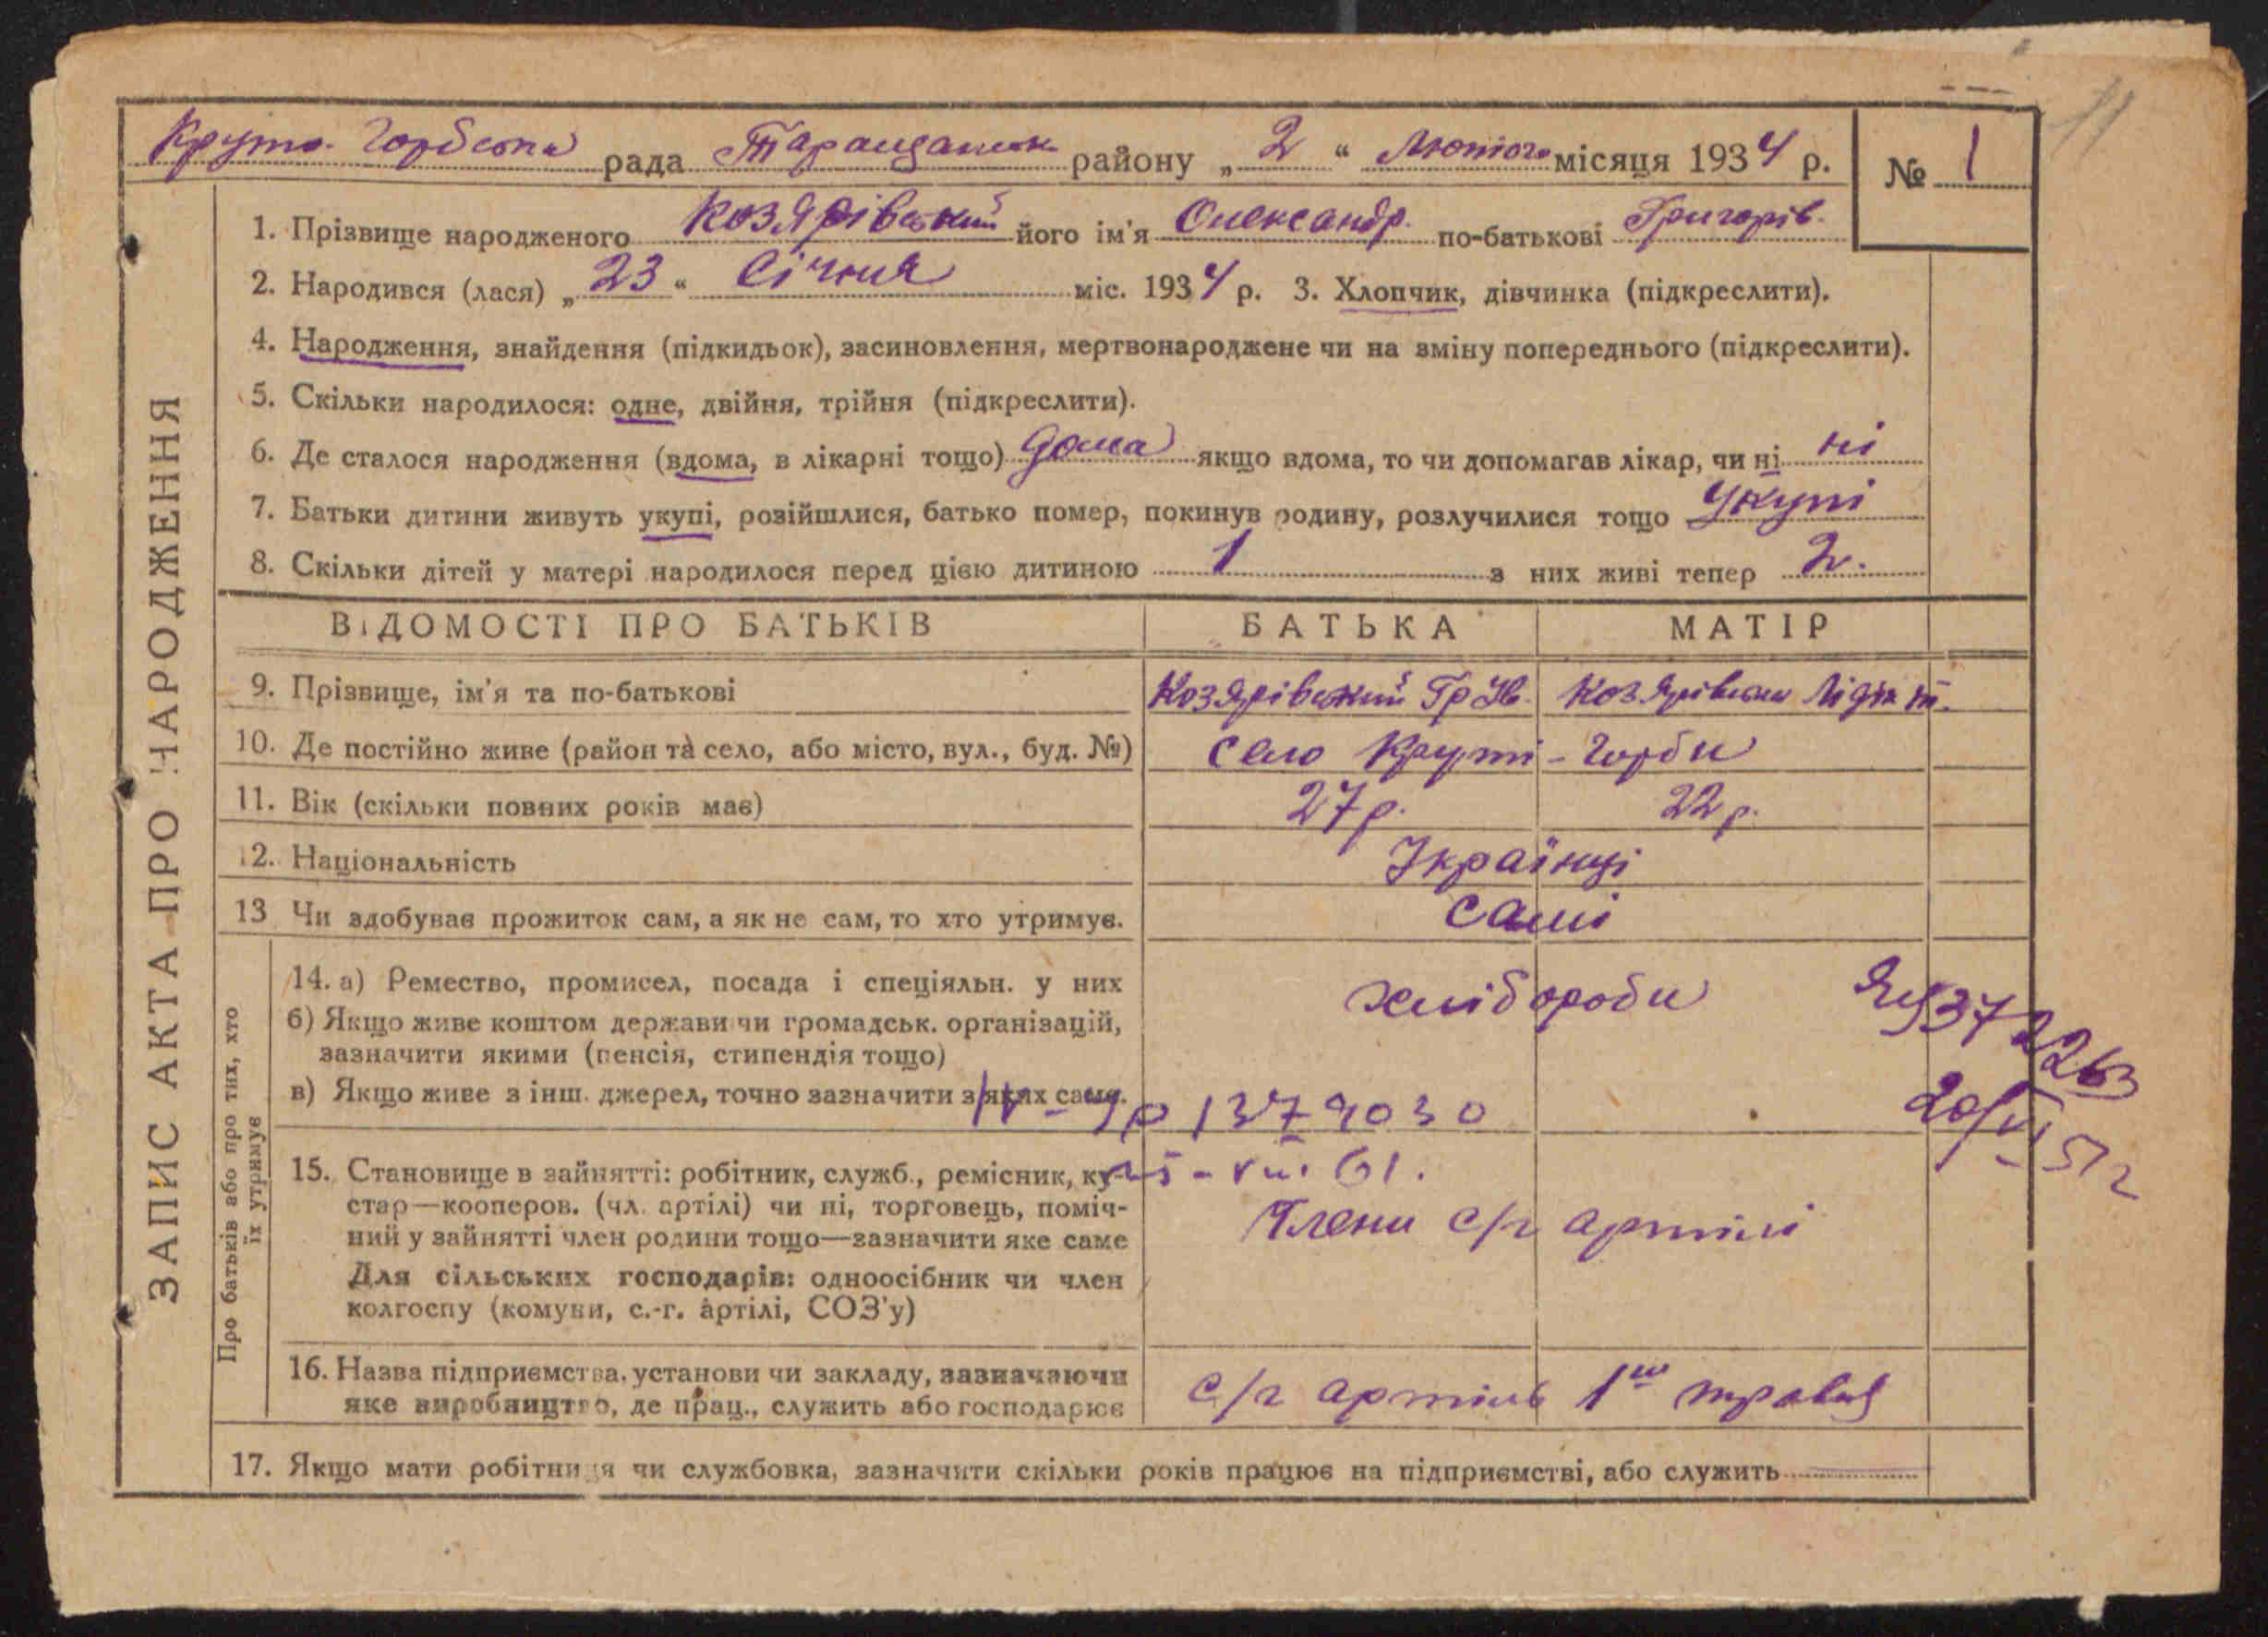 11
Круто-Горбська рада Таращанськ району „2“ Лютого місяця 1934 р. № 1
ЗАПИС АКТА ПРО НАРОДЖЕННЯ
1. Прізвище народженого Козярівський його ім'я Олександр. по-батькові Григорів.
2. Народився (лася) „23“ Січня міс. 1934 р. 3. Хлопчик, дівчинка (підкреслити).
4. Народження, знайдення (підкидьок), засиновлення, мертвонароджене чи на зміну попереднього (підкреслити).
5. Скільки народилося: одне, двійня, трійня (підкреслити).
6. Де сталося народження (вдома, в лікарні тощо) дома якщо вдома, то чи допомагав лікар, чи ні ні
7. Батьки дитини живуть укупі, розійшлися, батько помер, покинув родину, розлучилися тощо Укупі
8. Скільки дітей у матері народилося перед цією дитиною 1 з них живі тепер 2.
ВІДОМОСТІ ПРО БАТЬКІВ БАТЬКА МАТІР
9. Прізвище, ім'я та по-батькові Козярівський Гр Ів. Козярівська Лідія
10. Де постійно живе (район та село, або місто, вул., буд. №) село Круті-Горби
11. Вік (скільки повних років має) 27 р. 22 р.
12. Національність Українці
13 Чи здобуває прожиток сам, а як не сам, то хто утримує. самі
Про батьків або про тих, хто
їх утримує
14. а) Ремество, промисел, посада і спеціяльн. у них хлібороби
б) Якщо живе коштом держави чи громадськ. організацій,
зазначити якими (пенсія, стипендія тощо)
372263
в) Якщо живе з інш. джерел, точно зазначити з яких саме.
1379030
20/VI 51 г
15. Становище в зайнятті: робітник, служб., ремісник, ку-
VIII 61.
стар—кооперов. (чл. артілі) чи ні, торговець, поміч- Члени с/г артілі
ний у зайнятті член родини тощо—зазначити яке саме
Для сільських господарів: одноосібник чи член
колгоспу (комуни, с.-г. артілі, СОЗ'у)
16. Назва підприємства, установи чи закладу, зазначаючи с/г артіль 1ш травня
яке виробництво, де прац., служить або господарює
17. Якщо мати робітниця чи службовка, зазначити скільки років працює на підприємстві, або служить